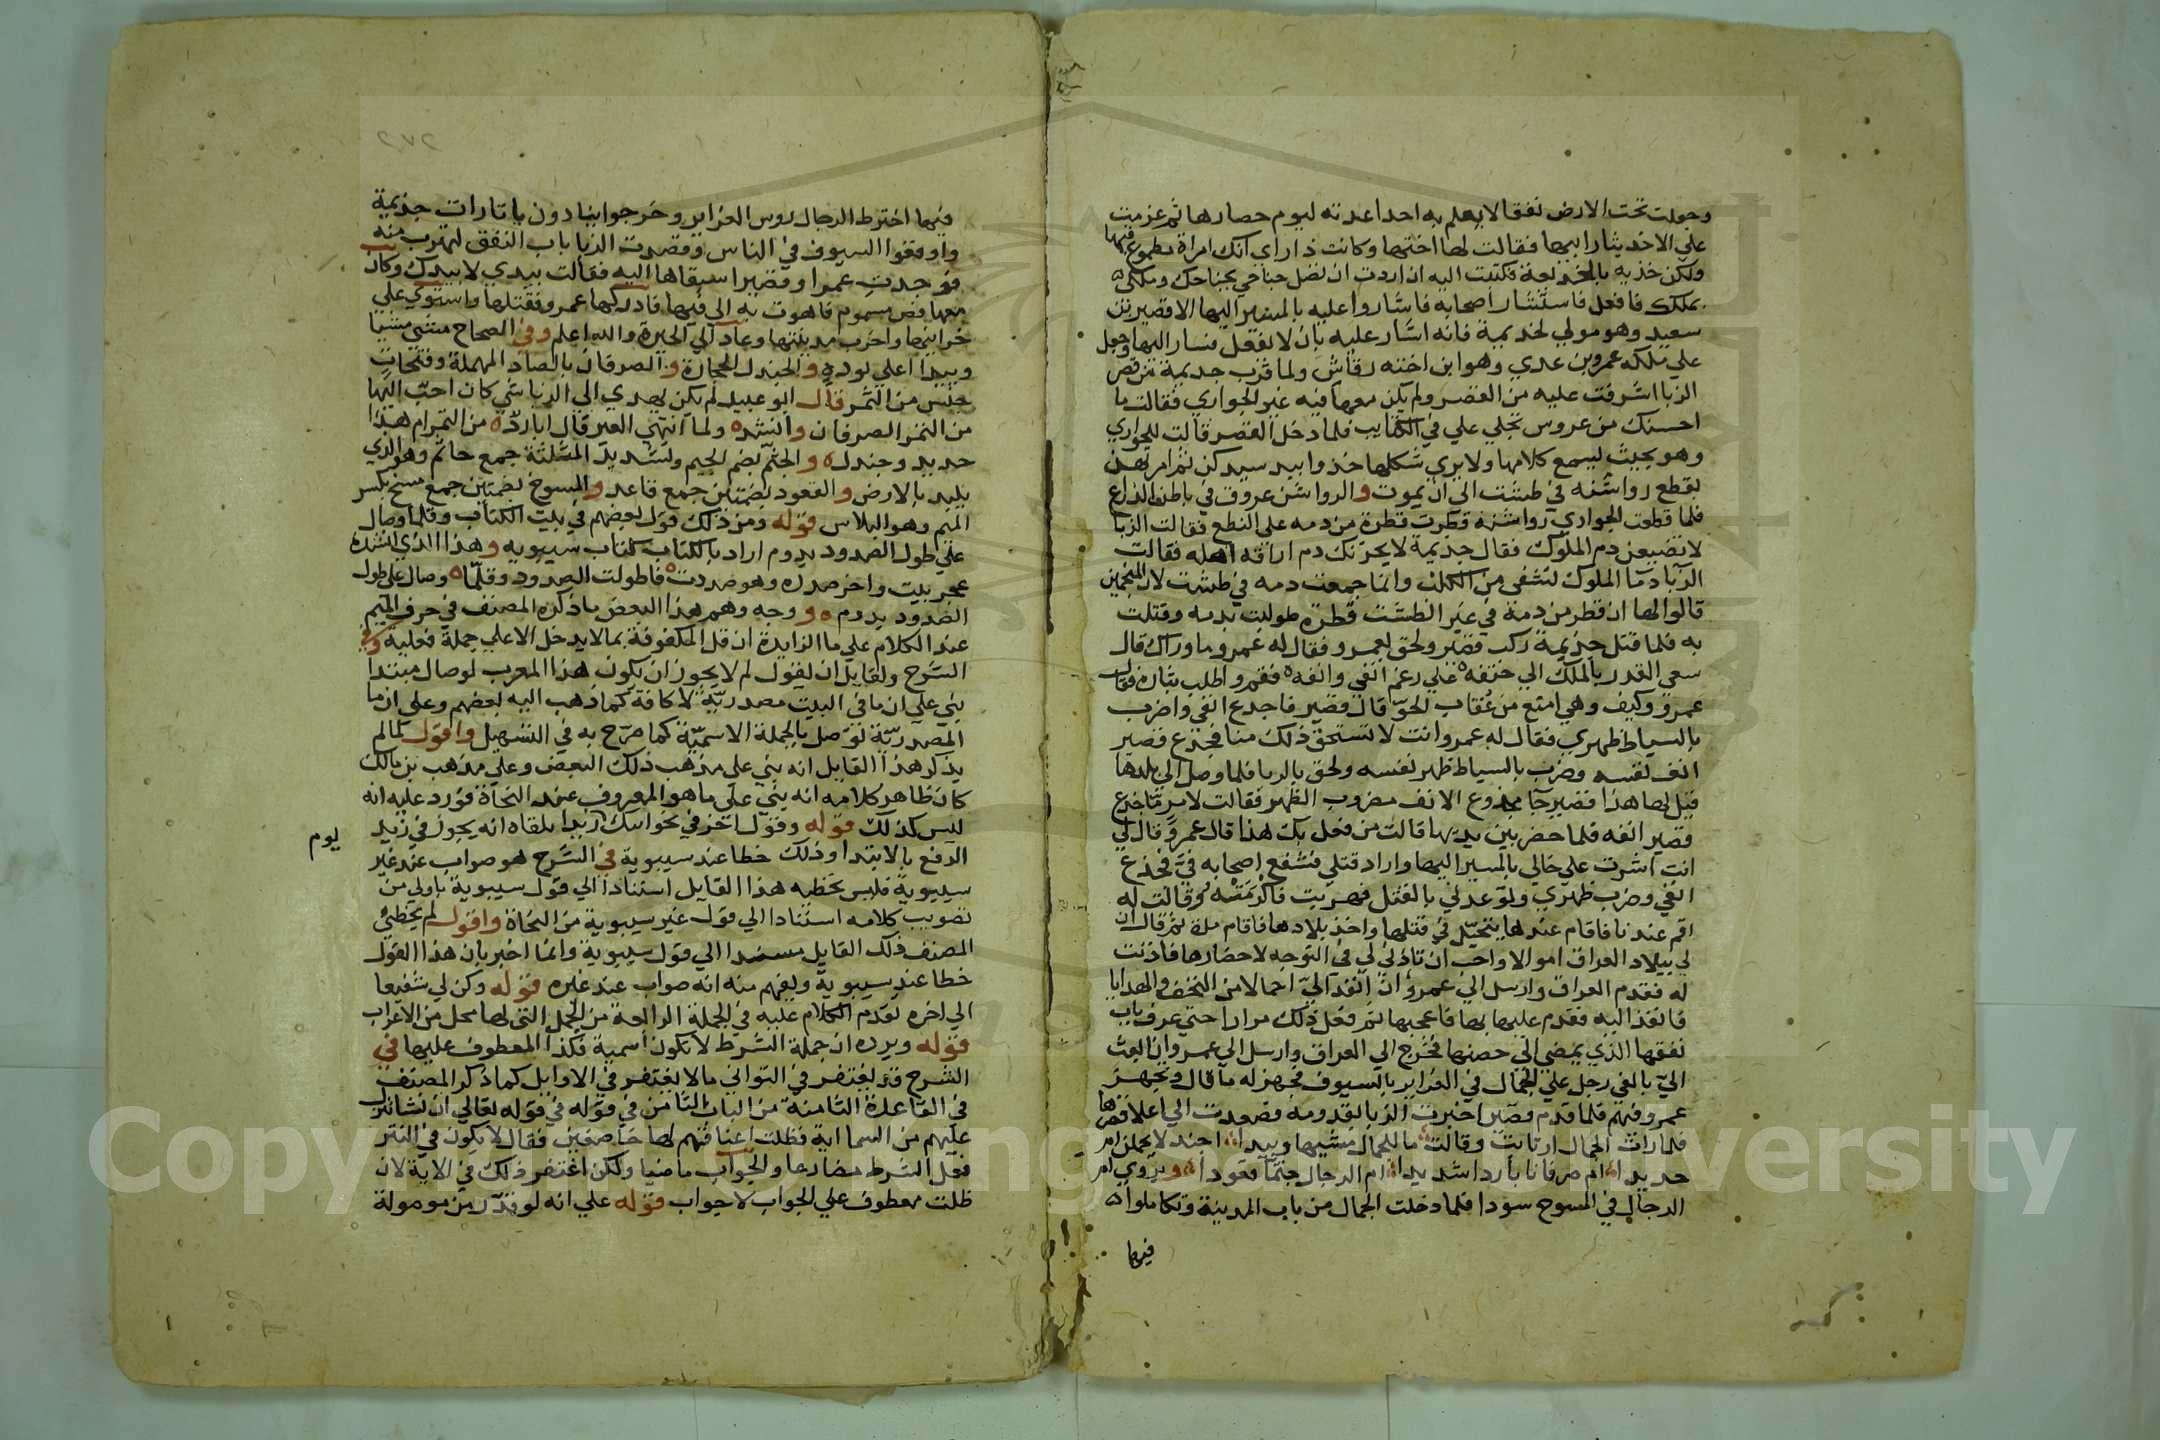 وجعلت تحت الارض نفقا لا يعلم به احد اعدته ليوم حصارها ثم عزمت
علي الاخذ بثار ابيها فقالت لها اختها وكانت ذا راي انك امراة مطموع فيها
ولكن خذيه بالخديعة فكتبت اليه ان اردت ان تصل جناحي بجناحك وملكي
بملكك فافعل فاستشار اصحابه فاشاروا عليه بالمسير اليها الا قصير بن
سعيد وهو مولي لجذيمة فانه اشار عليه بان لا يفعل فسار اليها وجعل
علي ملكه عمرو بن عدي وهو ابن اخته رقاش ولما قرب جذيمة من قصر
الزبا اشرفت عليه من القصر ولم يكن معها فيه غير الجواري فقالت ما
احسنك من عروس تجلي علي في الكتايب فلما دخل القصر قالت للجواري
وهو بحيث يسمع كلامها ولا يري شكلها خذوا بيد سيدكن ثم امر بهن
بقطع رواشنه في طشت الي ان يموت والرواشن عروق في باطن الذراع
فلما قطعت الجواري رواشنه قطرت قطرة من دمه علي النطع فقالت الزبا
لا تضيعن دم الملوك فقال جذيمة لا يحزنك دم اراقه اهله فقالت
الزبا دما الملوك تشفي من الكلب وانما جمعت دمه في طشت لان المنجمين
قالوا لها ان قطر من دمه في غير الطشت قطرة طولبت بدمه وقتلت
به فلما قتل جذيمة ركب قصير ولحق بعمرو فقال له عمرو ما وراك قال
سعي القدر بالملك الي حتفه علي رغم انفي وانفه فقم واطلب بثاره فقال
عمرو وكيف وهي امنع من عقاب الجو قال قصير فاجدع انفي واضرب
بالسياط ظهري فقال له عمرو انت لا تستحق ذلك منا فجذع قصير
انف نفسه وضرب بالسياط ظهر نفسه ولحق بالزبا فلما وصل الي بلدها
قيل لها هذا قصير جا مجذوع الانف مضروب الظهر فقالت لامر ما جدع
قصير انفه فلما حضر بين يديها قالت من فعل بك هذا قال عمرو قال لي
انت اشرت علي خالي بالمسير اليها واراد قتلي فشفع اصحابه في فجذع
انفي وضرب ظهري وتوعدني بالقتل فهربت فاكرمته وقالت له
اقم عندنا فاقام عندها يتحيل في قتلها واخذ بلادها فاقام مدة ثم قال ان
لي ببلاد العراق اموالا واحب ان تاذني لي في التوجه لاحضارها فاذنت
له فقدم العراق وارسل الي عمرو ان انفذ الي احمالا من التحف والهدايا
فانفذ اليه فقدم عليها بها فاعجبها ثم فعل ذلك مرارا حتي عرف باب
نفقها الذي يفضي الي حصنها فخرج الي العراق وارسل الي عمرو ان ابعث
الي بالفي رجل علي الجمال في الغراير بالسيوف فجهز له ما قال وتجهز
عمرو فيهم فلما قدم قصير اخبرت الزبا بقدومه فصعدت الي اعلا قصرها
فلما رات الجمال ارتابت وقالت ما للجمال مشيها وييدا اجندلا يحملن ام
حديدا ام صرفانا باردا شديدا ام الرجال جثما قعودا ويروي ام
الرجال في المسوح سودا فلما دخلت الجمال من باب المدينة وتكاملوا
فيها
٢٧٢
فيها اخترط الرجال روس الغراير وخرجوا ينادون يا ثارات جذيمة
واوقعوا السيوف في الناس وقصدت الزبا باب النفق لتهرب منه
فوجدت عمرا وقصيرا سبقاها اليه فقالت بيدي لا بيدك وكان
معها فص مسموم فاهوت به الي فيها فادركها عمرو فقتلها واستوي علي
خزاينها واخرب مدينتها وعاد الي الحيرة والله اعلم وفي الصحاح مشي مشيا
وييدا اعلي تودة والجندل الحجارة والصرفان بالصاد المهملة وفتحات
جنس من التمر قال ابو عبيد لم يكن يهدي الي الزبا شي كان احب اليها
من التمر الصرفان وانشد ولما اتتهي العير قال اباردٌ من التمر ام هذا
حديد وجندل والجثم بضم الجيم وتشديد المثلثة جمع جاثم وهو الذي
يلبد بالارض والقعود بضمتين جمع قاعد والمسوح بضمتين جمع مسح بكسر
الميم وهو البلاس قوله ومن ذلك قول بعضهم في بيت الكتاب وقلما وصال
علي طول الصدود يدوم اراد بالكتاب كتاب سيبويه وهذا الذي انشده
عجز بيت واخر صدره وهو صددت فاطولت الصدود وقلما وصال علي طول
الصدود يدوم ووجه وهم هذا البعض ما ذكره المصنف في حرف الميم
عند الكلام علي ما الزايدة ان قل المكفوفة بما لا يدخل الا علي جملة فعلية وفي
الشرح ولقايل ان يقول لم لا يجوز ان يكون هذا المعرب لوصال مبتدا
بني علي ان ما في البيت مصدرية لا كافة كما ذهب اليه بعضهم وعلي ان ما
المصدرية توصل بالجملة الاسمية كما صرح به في التسهيل واقول لما لم
يذكر هذا القايل انه بني علي مذهب ذلك البعض وعلي مذهب بن مالك
كان ظاهر كلامه انه بني علي ما هو المعروف عند النحاة فورد عليه انه
ليس كذلك قوله وقول اخر في نحو اتيتك زيدا تلقاه انه يجوز في زيد
يوم
الرفع بالابتدا وذلك خطا عند سيبوية في الشرح هو صواب عند غير
سيبوية فليس تخطيه هذا القايل استنادا الي قول سيبوية باولي من
تصويب كلامه استنادا الي قول غير سيبوية من النحاة واقول لم يخطي
المصنف ذلك القايل مستندا الي قول سيبوية وانما اخبر بان هذا القول
خطا عند سيبوية ويفهم منه انه صواب عند غيره قوله وكن لي شفيعا
الي اخره تقدم الكلام عليه في الجملة الرابعة من الجمل التي لها محل من الاعراب
قوله ويرده ان جملة الشرط لا تكون اسمية فكذا المعطوف عليها في
الشرح قد يغتفر في الثواني ما لا يغتفر في الاوايل كما ذكر المصنف
في القاعدة الثامنة من الباب الثامن في قوله في قوله تعالي ان نشا ننزل
عليهم من السما اية فظلت اعناقهم لها خاضعين فقال لا يكون في النثر
فعل الشرط مضارعا والجواب ماضيا ولكن اغتفر ذلك في الاية لان
ظلت معطوف علي الجواب لا جواب قوله علي انه لو قدر من موصولة